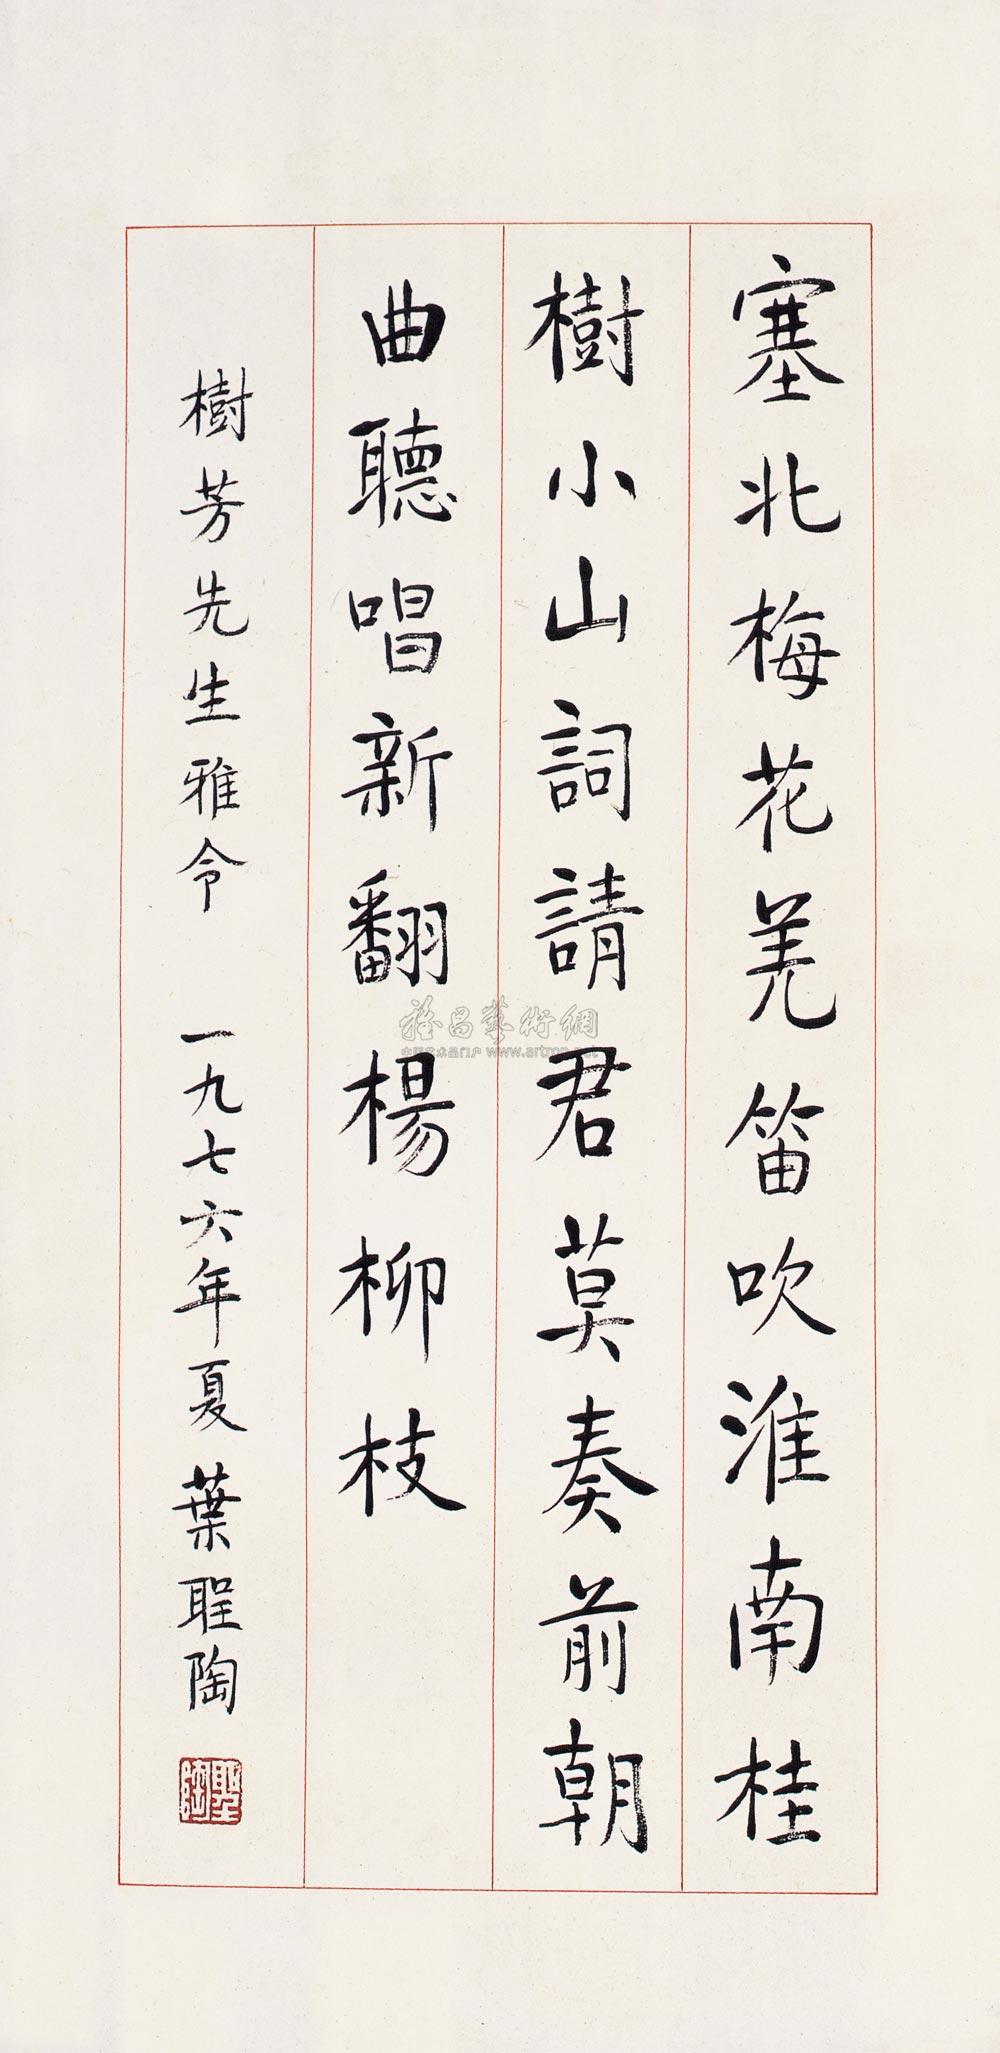 塞北梅花羌笛吹淮南桂
樹小山詞請君莫奏前朝
曲聽唱新翻楊柳枝
樹芳先生雅令 一九七六年夏 葉聖陶
聖陶
www.artron.net